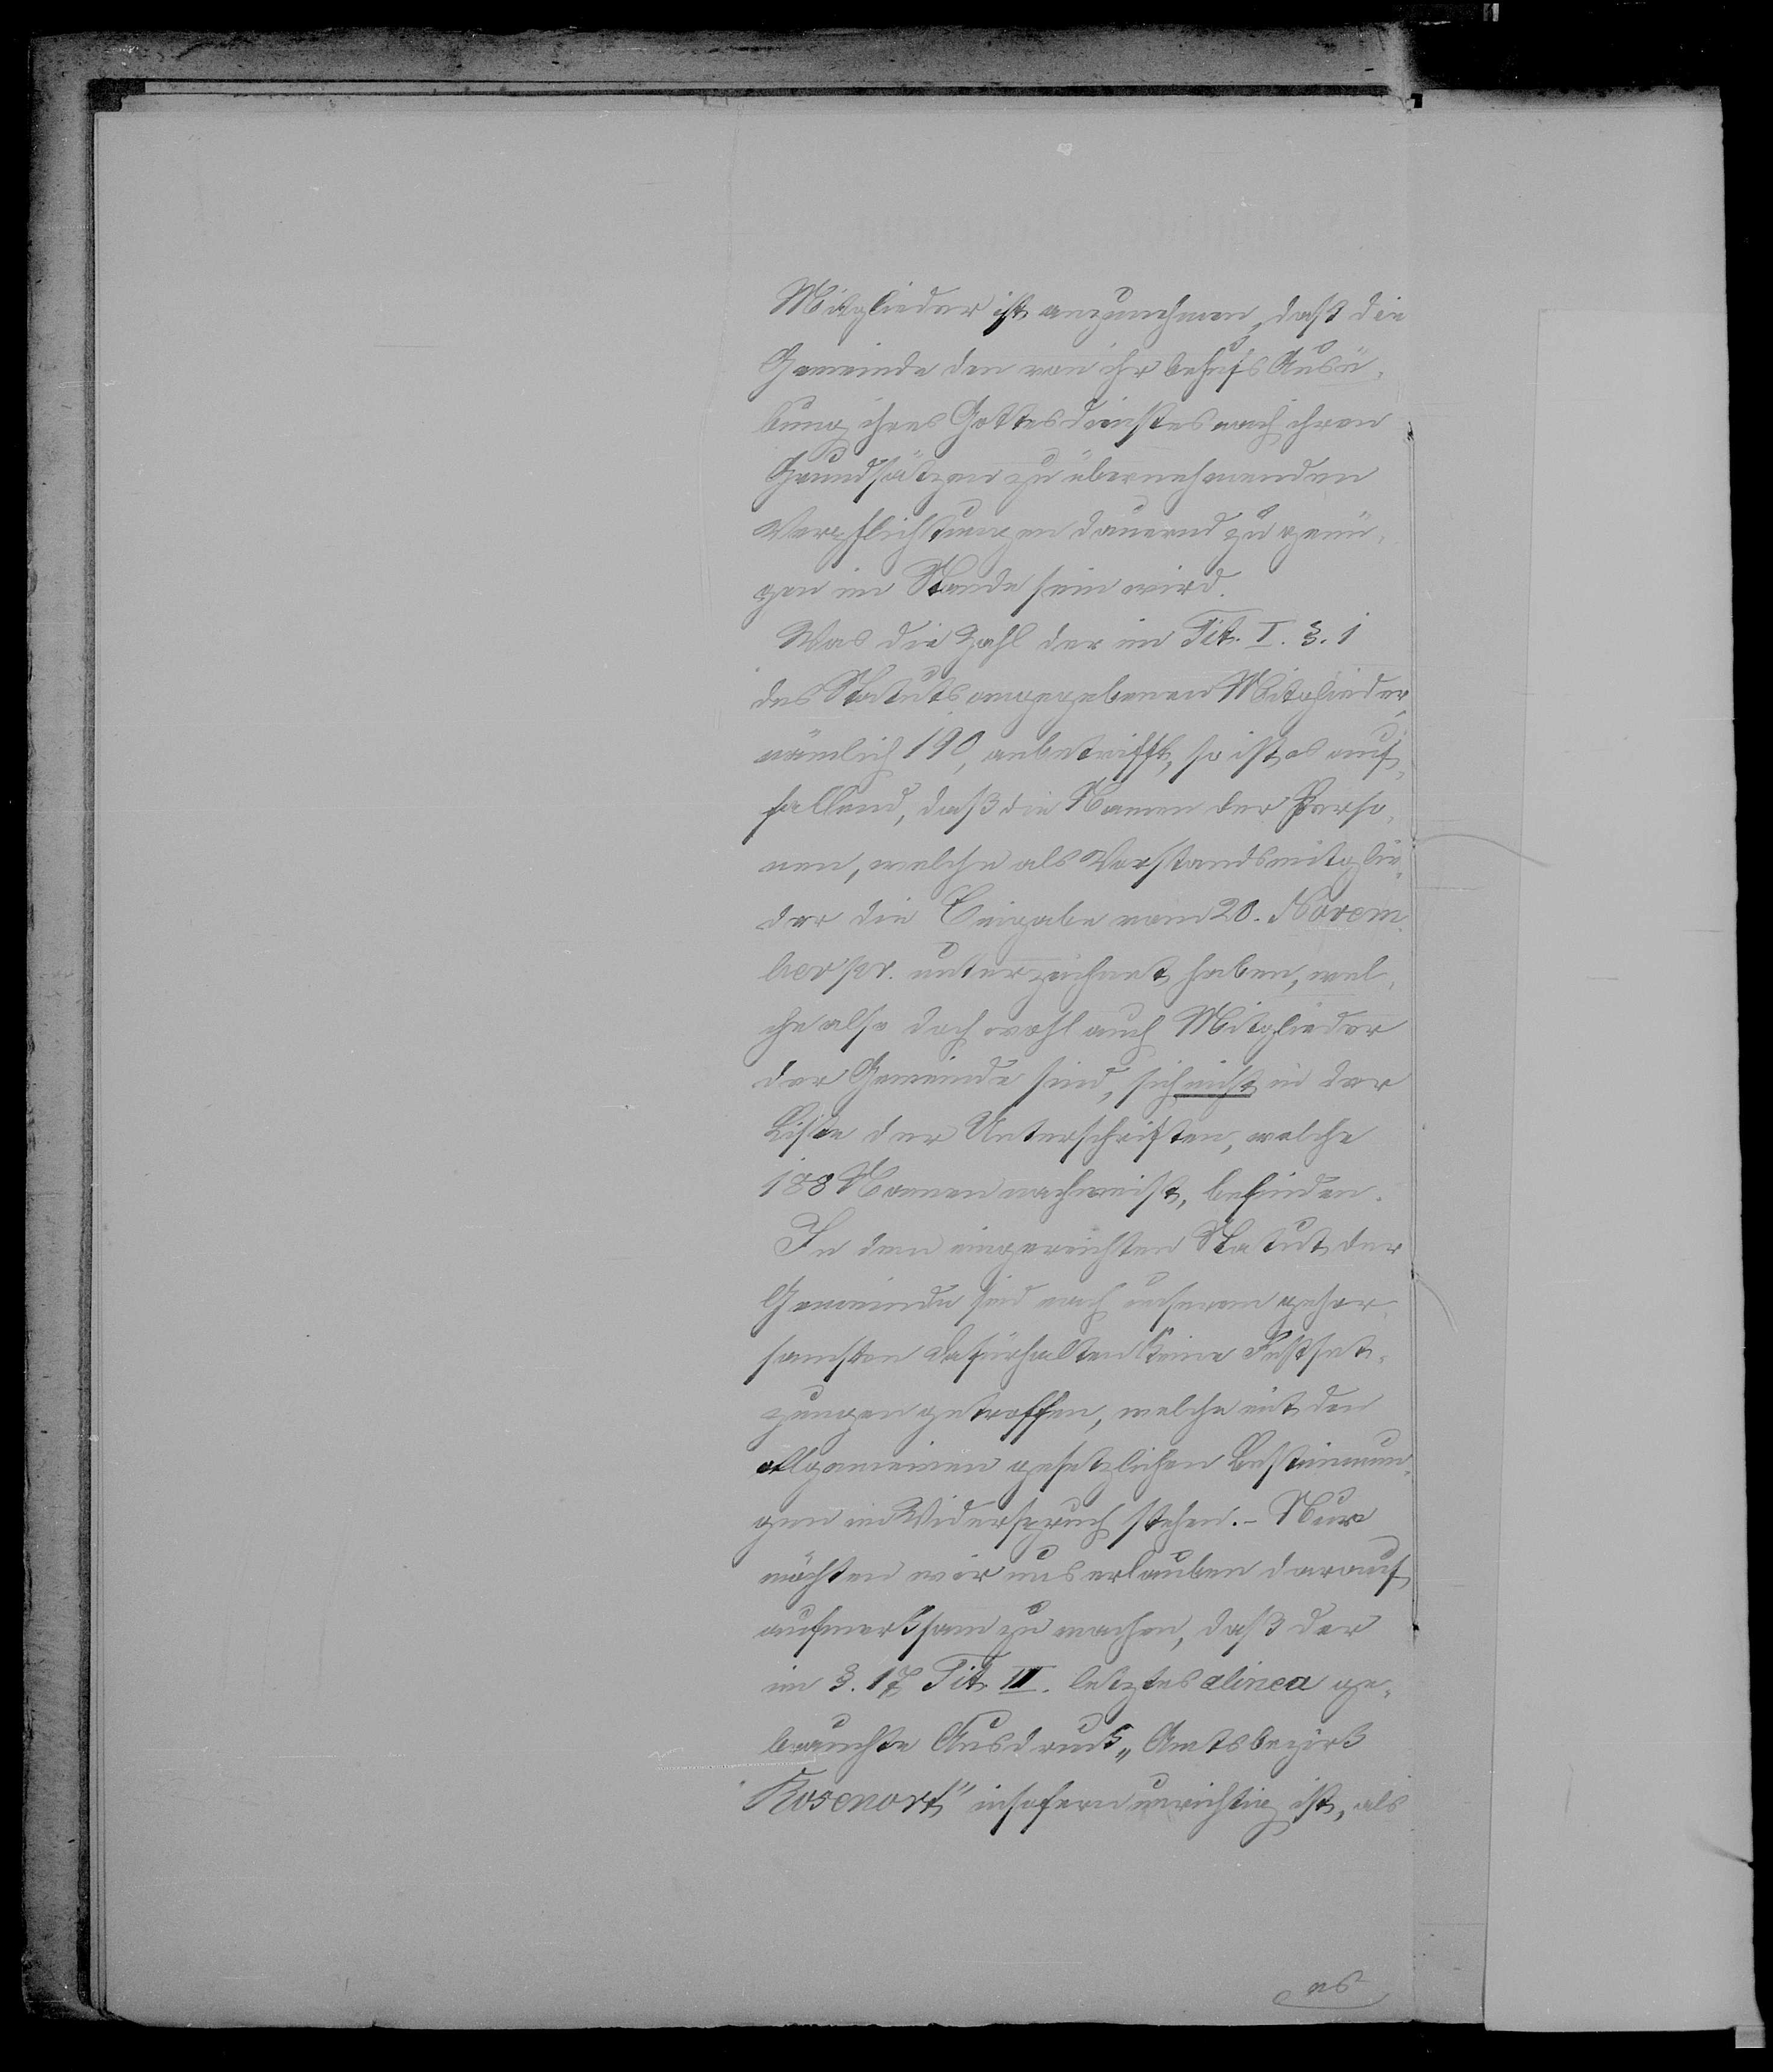 Mitglieder ist anzunehmen, daß die
Gemeinde den von ihr behufs Ausü-
bung ihres Gottesdienstes nach ihren
Grundsätzen zu übernehmenden
Verpflichtungen dauernd zu genü-
gen im Stande sein wird.
Was die Zahl der im Tit. I. §. 1
des Statuts angegebenen Mitglieder,
nämlich 190, anbetrifft, so ist es auf-
fallend, daß die Namen der Perso-
nen, welche als Vorstandsmitglie-
der die Eingabe vom 20. Novem-
ber pr. unterzeichnet haben, wel-
che also doch wohl auch Mitglieder
der Gemeinde sind, sich nicht in der
Liste der Unterschriften, welche
188 Namen nachweist, befinden.
In dem eingereichten Statut der
Gemeinde sind nach unserem gehor-
samsten Dafürhalten keine Festset-
zungen getroffen, welche mit den
allgemeinen gesetzlichen Bestimmun-
gen in Widerspruch stehen. - Nur
möchten wir uns erlauben darauf
aufmerksam zu machen, daß der
im §. 17 Tit. III. letztes alinea ge-
brauchte Ausdruck „Amtsbezirk
Rosenort" insofern unrichtig ist, als
es